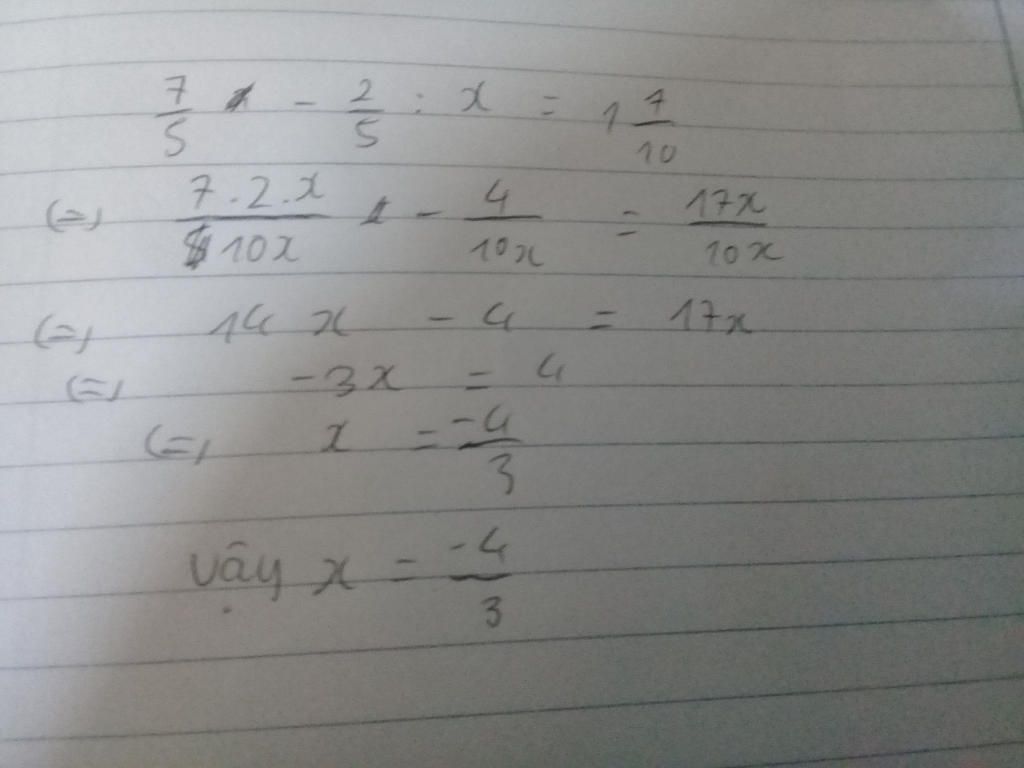 7/5 - 2/5 : x = 1 7/10
(=) 7.2.x/10x - 4/10x = 17x/10x
(=) 14x - 4 = 17x
(=) -3x = 4
(=) x = -4/3
Vậy x = -4/3